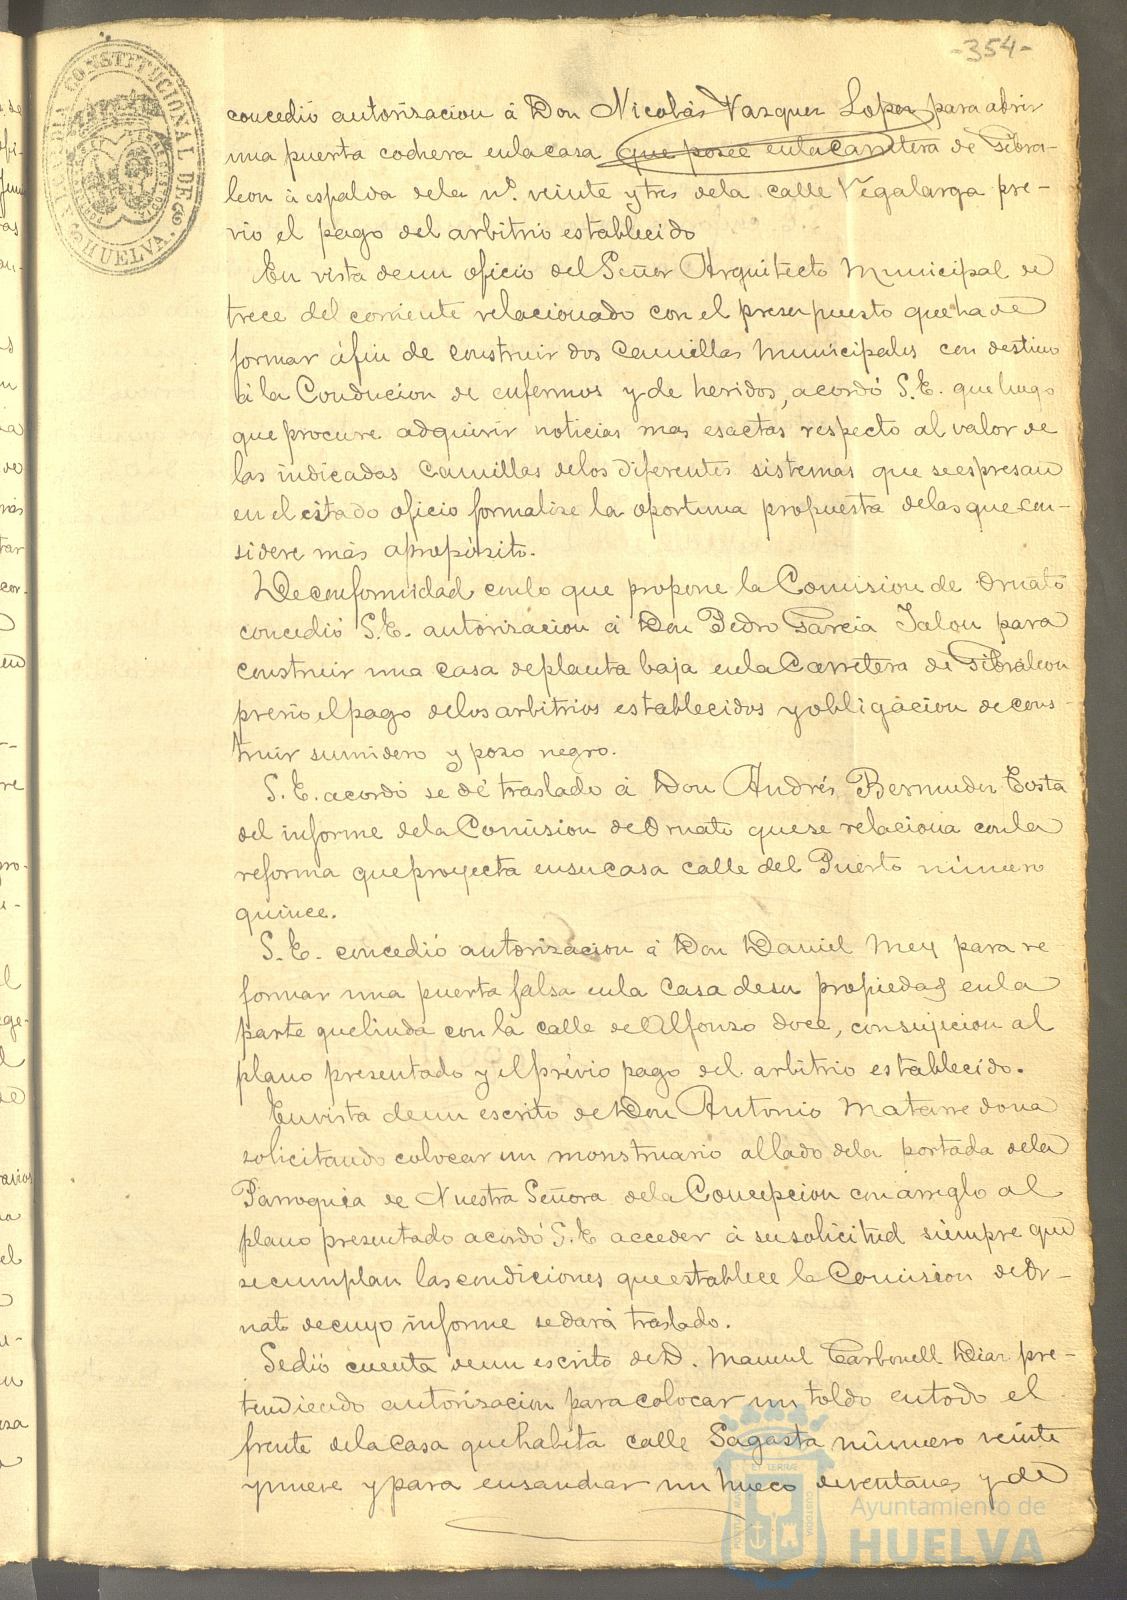 -354-
ALCALDIA CONSTITUCIONAL DE
HUELVA.
concedió autorizacion á Don Nicolás Vazquez Lopez para abrir
una puerta cochera en la casa que posee en la Carretera de Gibra-
leon á espalda de la nº. veinte y tres de la calle Vegalarga pre-
vio el pago del arbitrio establecido
En vista de un oficio del Señor Arquitecto Municipal de
trece del corriente relacionado con el presupuesto que ha de
formar á fin de construir dos Camillas Municipales con destino
á la Conducion de enfermos y de heridos, acordó S.E. que luego
que procure adquirir noticias mas esactas respecto al valor de
las indicadas Camillas de los diferentes sistemas que se espresan
en el citado oficio formalize la oportuna propuesta de las que con-
sidere más apropósito.
De conformidad con lo que propone la Comision de Ornato
concedió S.E. autorizacion á Don Pedro Garcia Jalon para
construir una casa de planta baja en la Carretera de Gibraleon
previo el pago de los arbitrios establecidos y obligacion de cons-
truir sumidero y pozo negro.
S.E. acordó se dé traslado á Don Andrés Bermudez Costa
del informe de la Comision de Ornato que se relaciona con la
reforma que proyecta en su casa calle del Puerto número
quince.
S.E. concedió autorizacion á Don Daniel Mey para re-
formar una puerta falsa en la casa de su propiedad en la
parte que linda con la calle de Alfonso doce, con sujecion al
plano presentado y el prévio pago del arbitrio establecido.
En vista de un escrito de Don Antonio Matarredona
solicitando colocar un monstruario al lado de la portada de la
Parroquia de Nuestra Señora de la Concepcion con arreglo al
plano presentado acordó S.E acceder á su solicitud siempre que
se cumplan las condiciones que establece la Comision de Or-
nato de cuyo informe se dará traslado.
Se dió cuenta de un escrito de D. Manuel Carbonell Diaz pre-
tendiendo autorizacion para colocar un toldo en todo el
frente de la casa que habita calle Sagasta número veinte
y nueve y para ensanchar un hueco de ventana y de
Ayuntamiento de
HUELVA